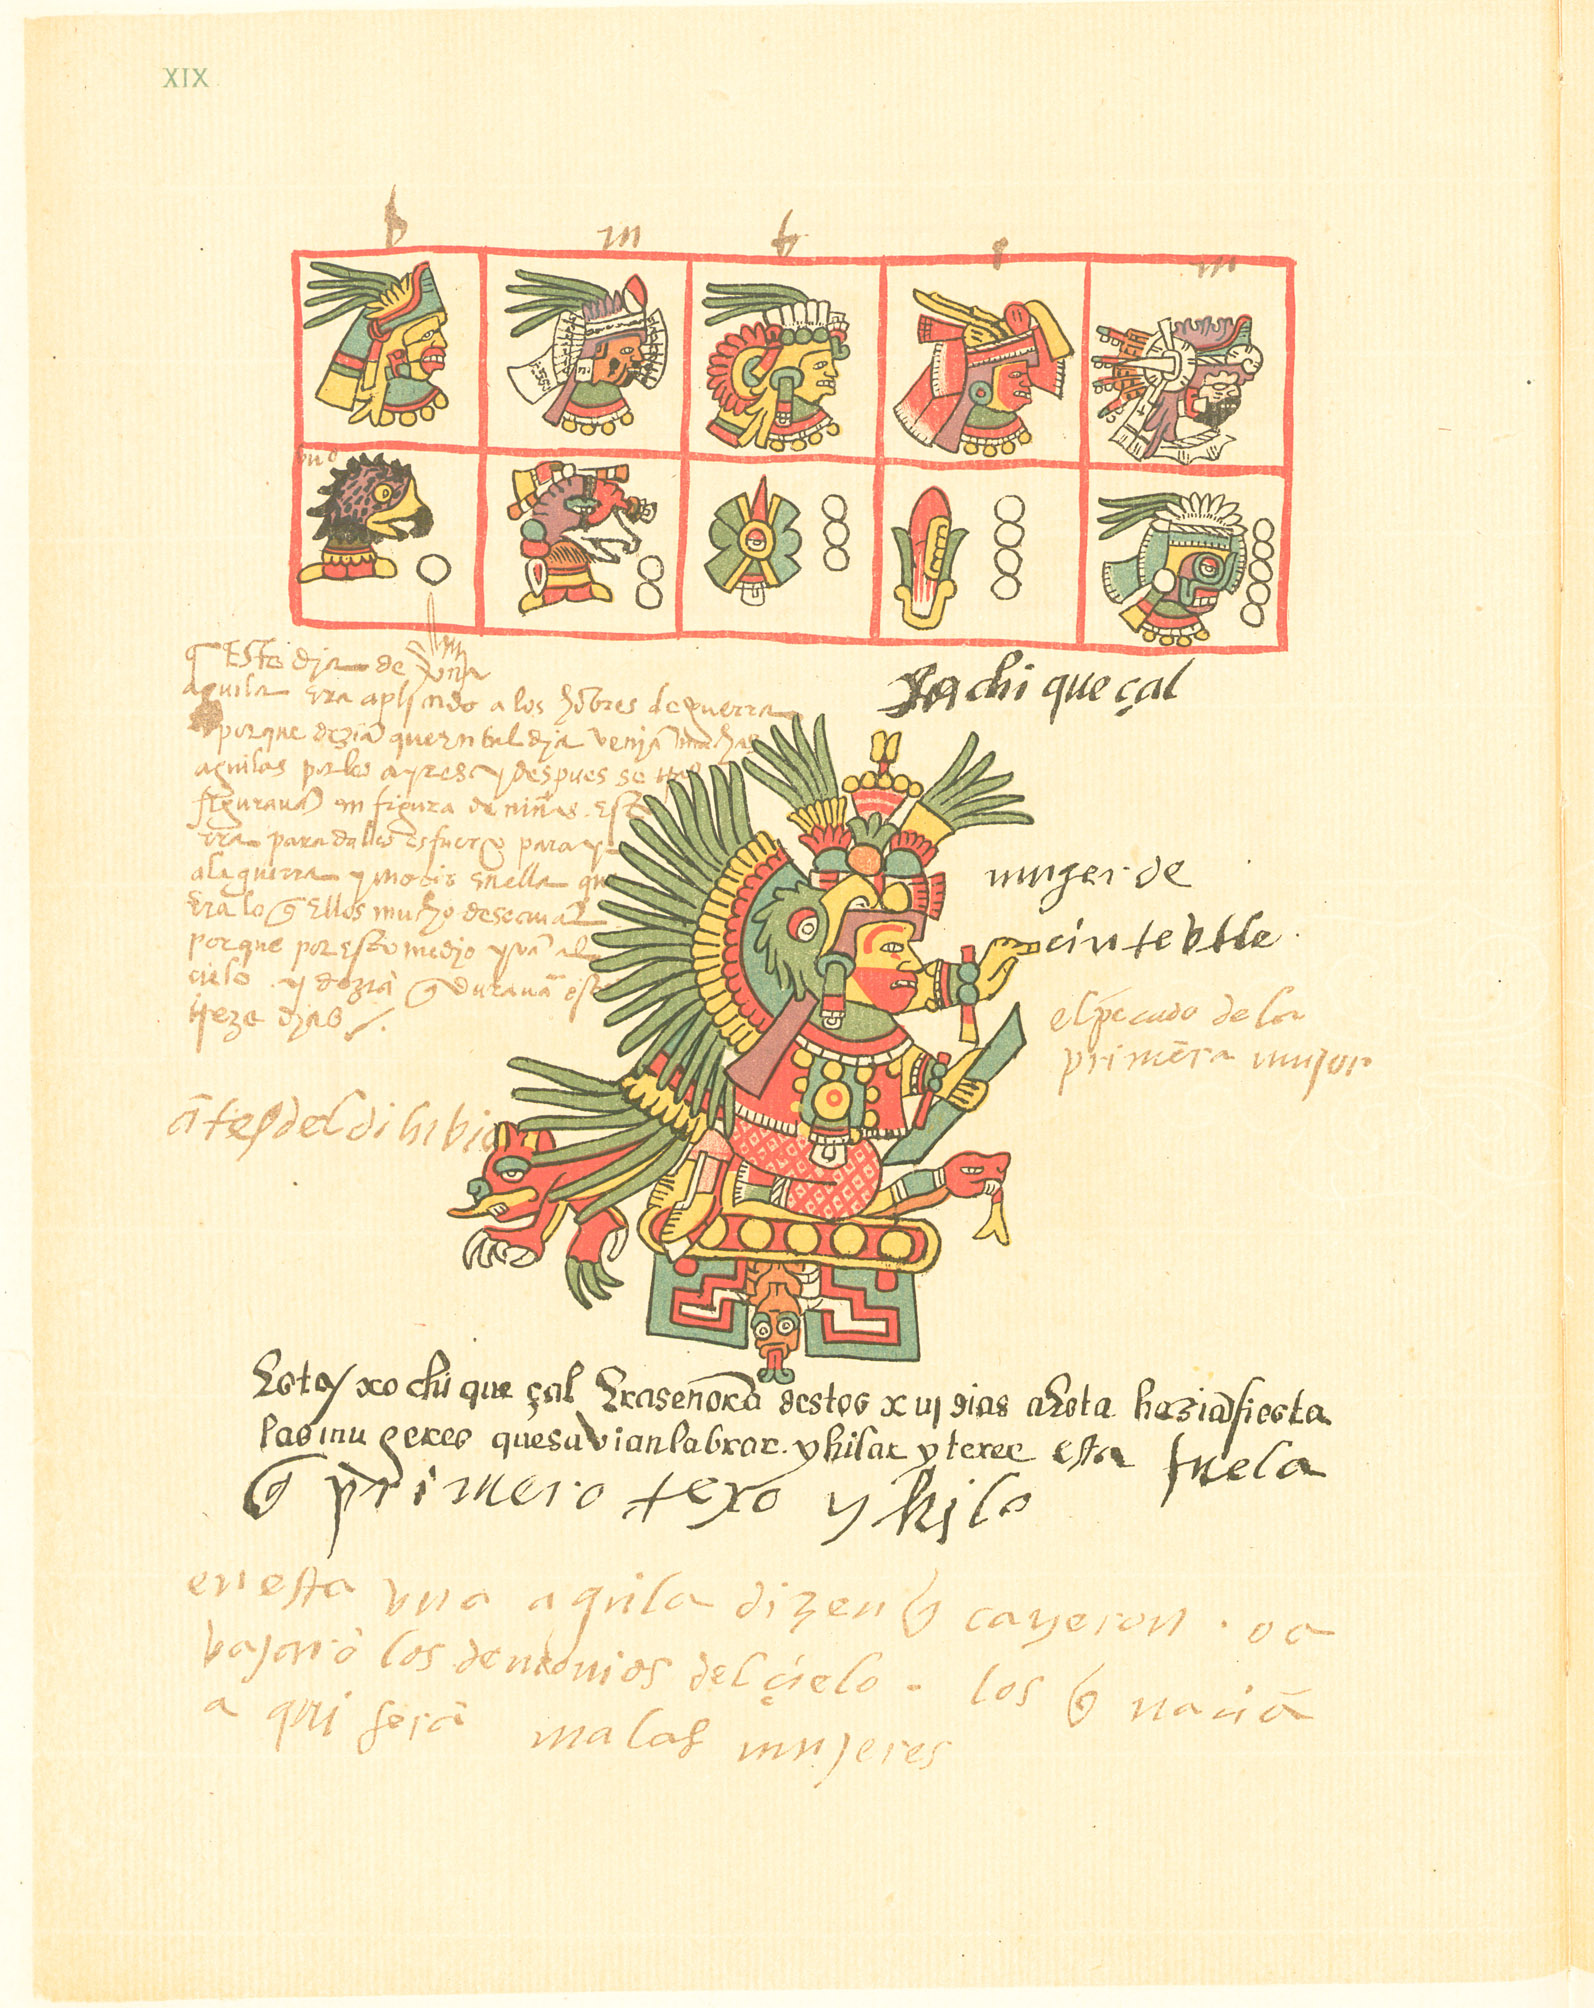 XIX
b
m
b
m
Este dja de una
aguila era aplicado a los hōbres de guerra
porque dezia q̄ en tal dja venjā muchas
aguilas por los ayres y despues se
figuravā en figura de niñas. Esto
era para dalles esfuerço para yr
a la guerra y morir en ella que
era lo q̄ Ellos mucho deseavā
porque por Esto medio yvā al
cielo. y dezia q̄ duravā esto
treze djas
xochi que çal
muger de
cinteutle.
el pecado de la
primera mujer
ātes del dilubio
Esta xo chi que çal Era señora destos xiij dias a Esta hazian fiesta
las mu geres que savian labrar. y hilar y texer esta fue la
q̄ primero texo y hilo
en esta una aguila dizen q̄ cayeron. o a
bajarō los demonios del çielo. los q̄ naciā
a qui serā malas mujeres